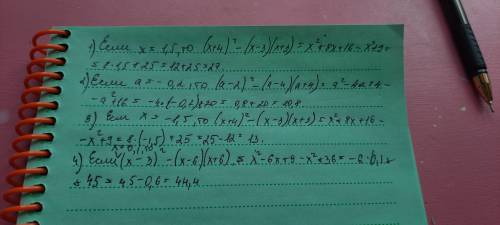 1) Если x = 1,5, то (x+4)² - (x-3)(x+3) = x² + 8x + 16 - x² + 9 =
= 8·1,5 + 25 = 12 + 25 = 37
2) Если a = - 0,2, то (a-2)² - (a-4)(a+4) = a² - 4a + 4 -
- a² + 16 = -4·(-0,2) + 20 = 0,8 + 20 = 20,8
3) Если x = -1,5, то (x+4)² - (x-3)(x+3) = x² + 8x + 16 -
- x² + 9 = 8·(-1,5) + 25 = 25 - 12 = 13
x = 0,1, то
4) Если (x-3)² - (x-6)(x+6) = x² - 6x + 9 - x² + 36 = -6·0,1 +
+ 45 = 45 - 0,6 = 44,4